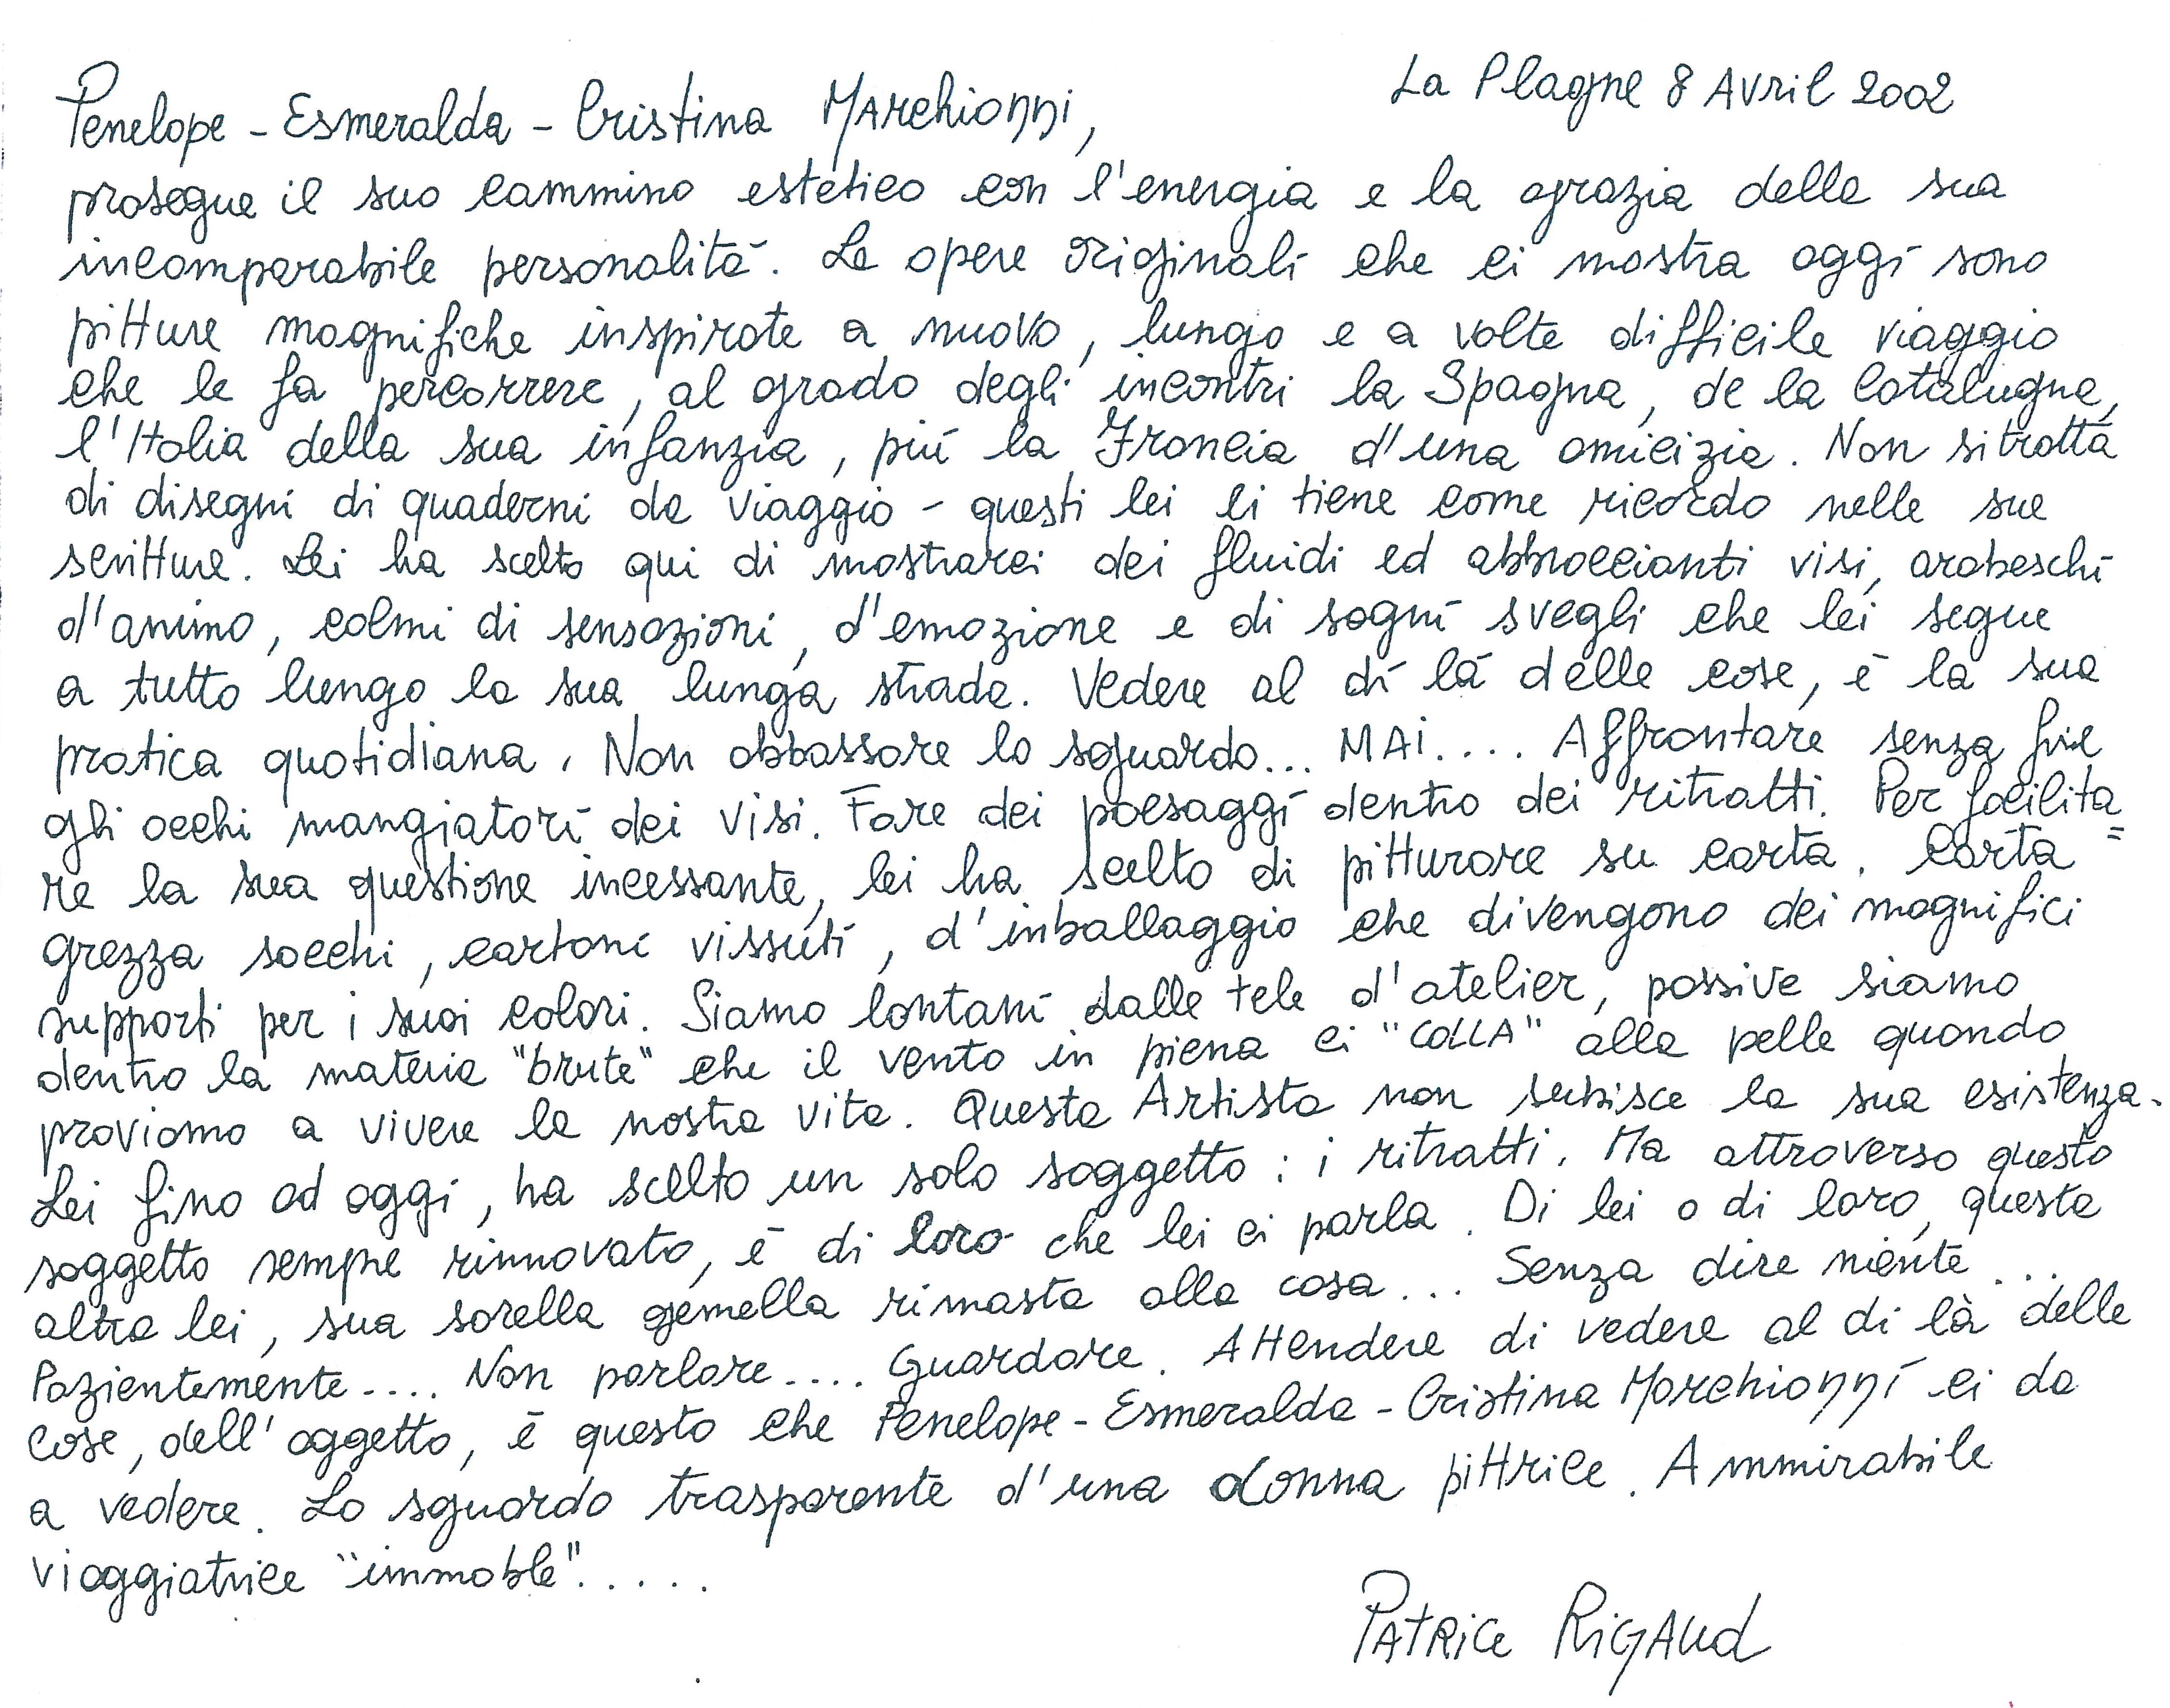 La Plagne 8 Avril 2002
Penelope - Esmeralda - Cristina Marchionni,
prosegue il suo cammino estetico con l'energia e la grazia della sua
incomparabile personalitá. Le opere originali che ci mostra oggi sono
pitture magnifiche inspirate a nuovo, lungo e a volte difficile viaggio
che le fa percorrere, al grado degli incontri la Spagna, de la Catalugna,
l'Italia della sua infanzia, piú la Francia d'una amicizia. Non si tratta
di disegni di quaderni da viaggio - questi lei li tiene come ricordo nelle sue
scritture. Lei ha scelto qui di mostrarci dei fluidi ed abbraccianti visi, arabeschi
d'animo, colmi di sensazioni, d'emozione e di sogni svegli che lei segue
a tutto lungo la sua lunga strada. Vedere al di lá delle cose, é la sua
pratica quotidiana. Non abbassare lo sguardo... MAI.... Affrontare senza fine
gli occhi mangiatori dei visi. Fare dei paesaggi dentro dei ritratti. Per facilita=
re la sua questione incessante, lei ha scelto di pitturare su carta. Carta
grezza sacchi, cartoni vissuti, d'inballaggio che divengono dei magnifici
supporti per i suoi colori. Siamo lontani dalle tele d'atelier, passive siamo
dentro la materia "brute" che il vento in piena ci "COLLA" alla pelle quando
proviamo a vivere la nostra vita. Questa Artista non subisce la sua esistenza.
Lei fino ad oggi, ha scelto un solo soggetto: i ritratti. Ma attraverso questo
soggetto sempre rinnovato, é di loro che lei ci parla. Di lei o di loro, questa
altra lei, sua sorella gemella rimasta alla casa... Senza dire niente...
Pazientemente.... Non parlare.... Guardare. Attendere di vedere al di là delle
cose, dell'oggetto, é questo che Penelope - Esmeralda - Cristina Marchionni ci da
a vedere. Lo sguardo trasparente d'una donna pittrice. Ammirabile
viaggiatrice "immoble".....
Patrice Rigaud